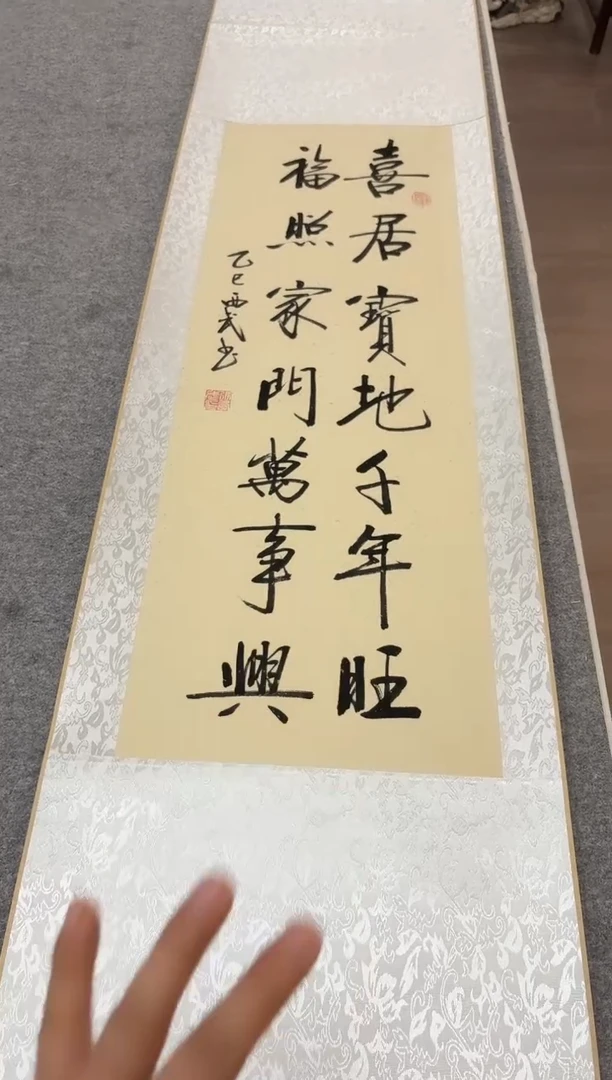 喜居寶地千年旺
福照家門萬事興
乙巳西武书